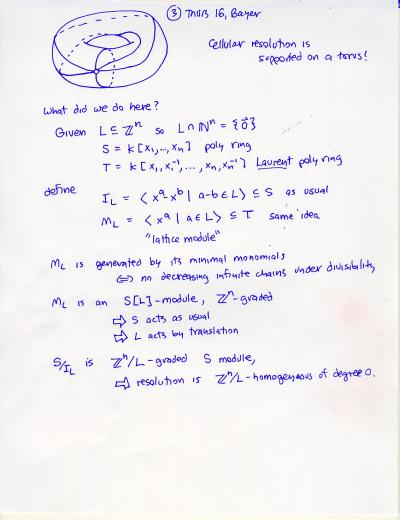 ③ Thurs 16, Bayer
Cellular resolution is
supported on a torus!
What did we do here?
Given L ⊆ ℤⁿ so L ∩ ℕⁿ = {0⃗}
S = k[x₁,…,xₙ] poly ring
T = k[x₁,x₁⁻¹,…,xₙ,xₙ⁻¹] Laurent poly ring
define I_L = ⟨xᵃ-xᵇ | a-b ∈ L⟩ ⊆ S as usual
M_L = ⟨xᵃ | a ∈ L⟩ ⊆ T same idea
"lattice module"
M_L is generated by its minimal monomials
⇔ no decreasing infinite chains under divisibility
M_L is an S[L]-module, ℤⁿ-graded
⇨ S acts as usual
⇨ L acts by translation
S/I_L is ℤⁿ/L-graded S module,
⇨ resolution is ℤⁿ/L-homogeneous of degree 0.